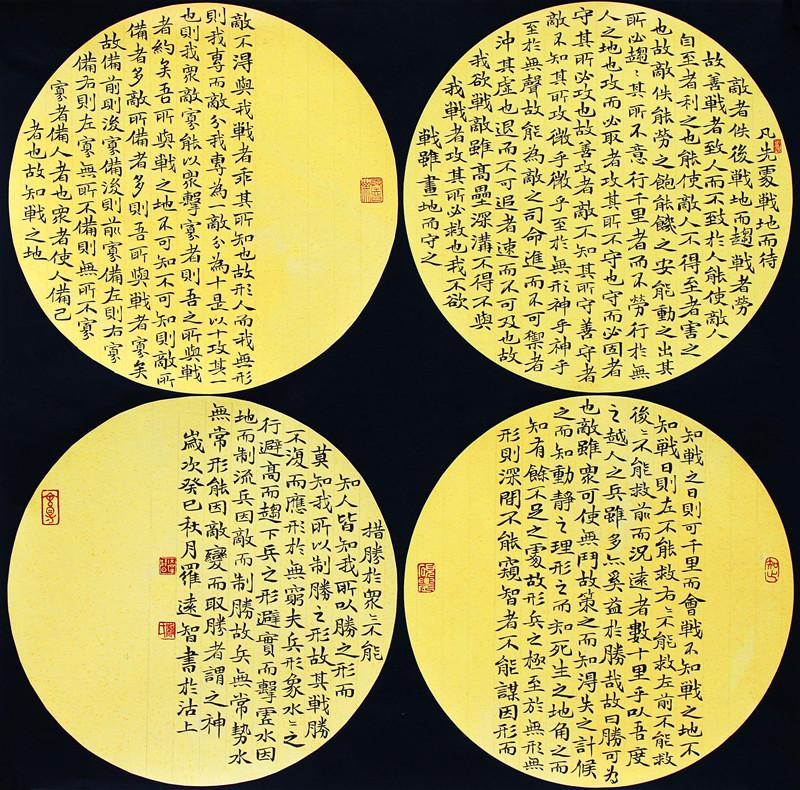 凡先處戰地而待
敵者佚後戰地而趨戰者勞
故善戰者致人而不致於人能使敵人
自至者利之也能使敵人不得至者害之
也故敵佚能勞之飽能饑之安能動之出其
所必趨〻其所不意行千里者而不勞行於無
人之地也攻而必取者攻其所不守也守而必固者
守其所必攻也故善攻者敵不知其所守善守者
敵不知其所攻微乎微乎至於無形神乎神乎
至於無聲故能為敵之司命進而不可禦者
沖其虛也退而不可追者速而不可及也故
我欲戰敵雖高壘深溝不得不與
我戰者攻其所必救也我不欲
戰雖畫地而守之
敵不得與我戰者乖其所知也故形人而我無形
則我專而敵分我專為一敵分為十是以十攻其一
也則我眾敵寡能以眾擊寡者則吾之所與戰
者約矣吾所與戰之地不可知不可知則敵所
備者多敵所備者多則吾所與戰者寡矣
故備前則後寡備後則前寡備左則右寡
備右則左寡無所不備則無所不寡
寡者備人者也眾者使人備己
者也故知戰之地
知戰之日則可千里而會戰不知戰之地不
知戰日則左不能救右〻不能救左前不能救
後〻不能救前而況遠者數十里乎以吾度
之越人之兵雖多奚益於勝哉故曰勝可為
也敵雖眾可使無鬥故策之而知得失之計候
之而知動靜之理形之而知死生之地角之而
知有餘不足之處故形兵之極至於無形無
形則深間不能窺智者不能謀因形而
措勝於眾〻不能
知人皆知我所以勝之形而
莫知我所以制勝之形故其戰勝
不復而應形於無窮夫兵形象水〻之
行避高而趨下兵之形避實而擊虛水因
地而制流兵因敵而制勝故兵無常勢水
無常形能因敵變而取勝者謂之神
歲次癸巳秋月羅遠智書於沽上